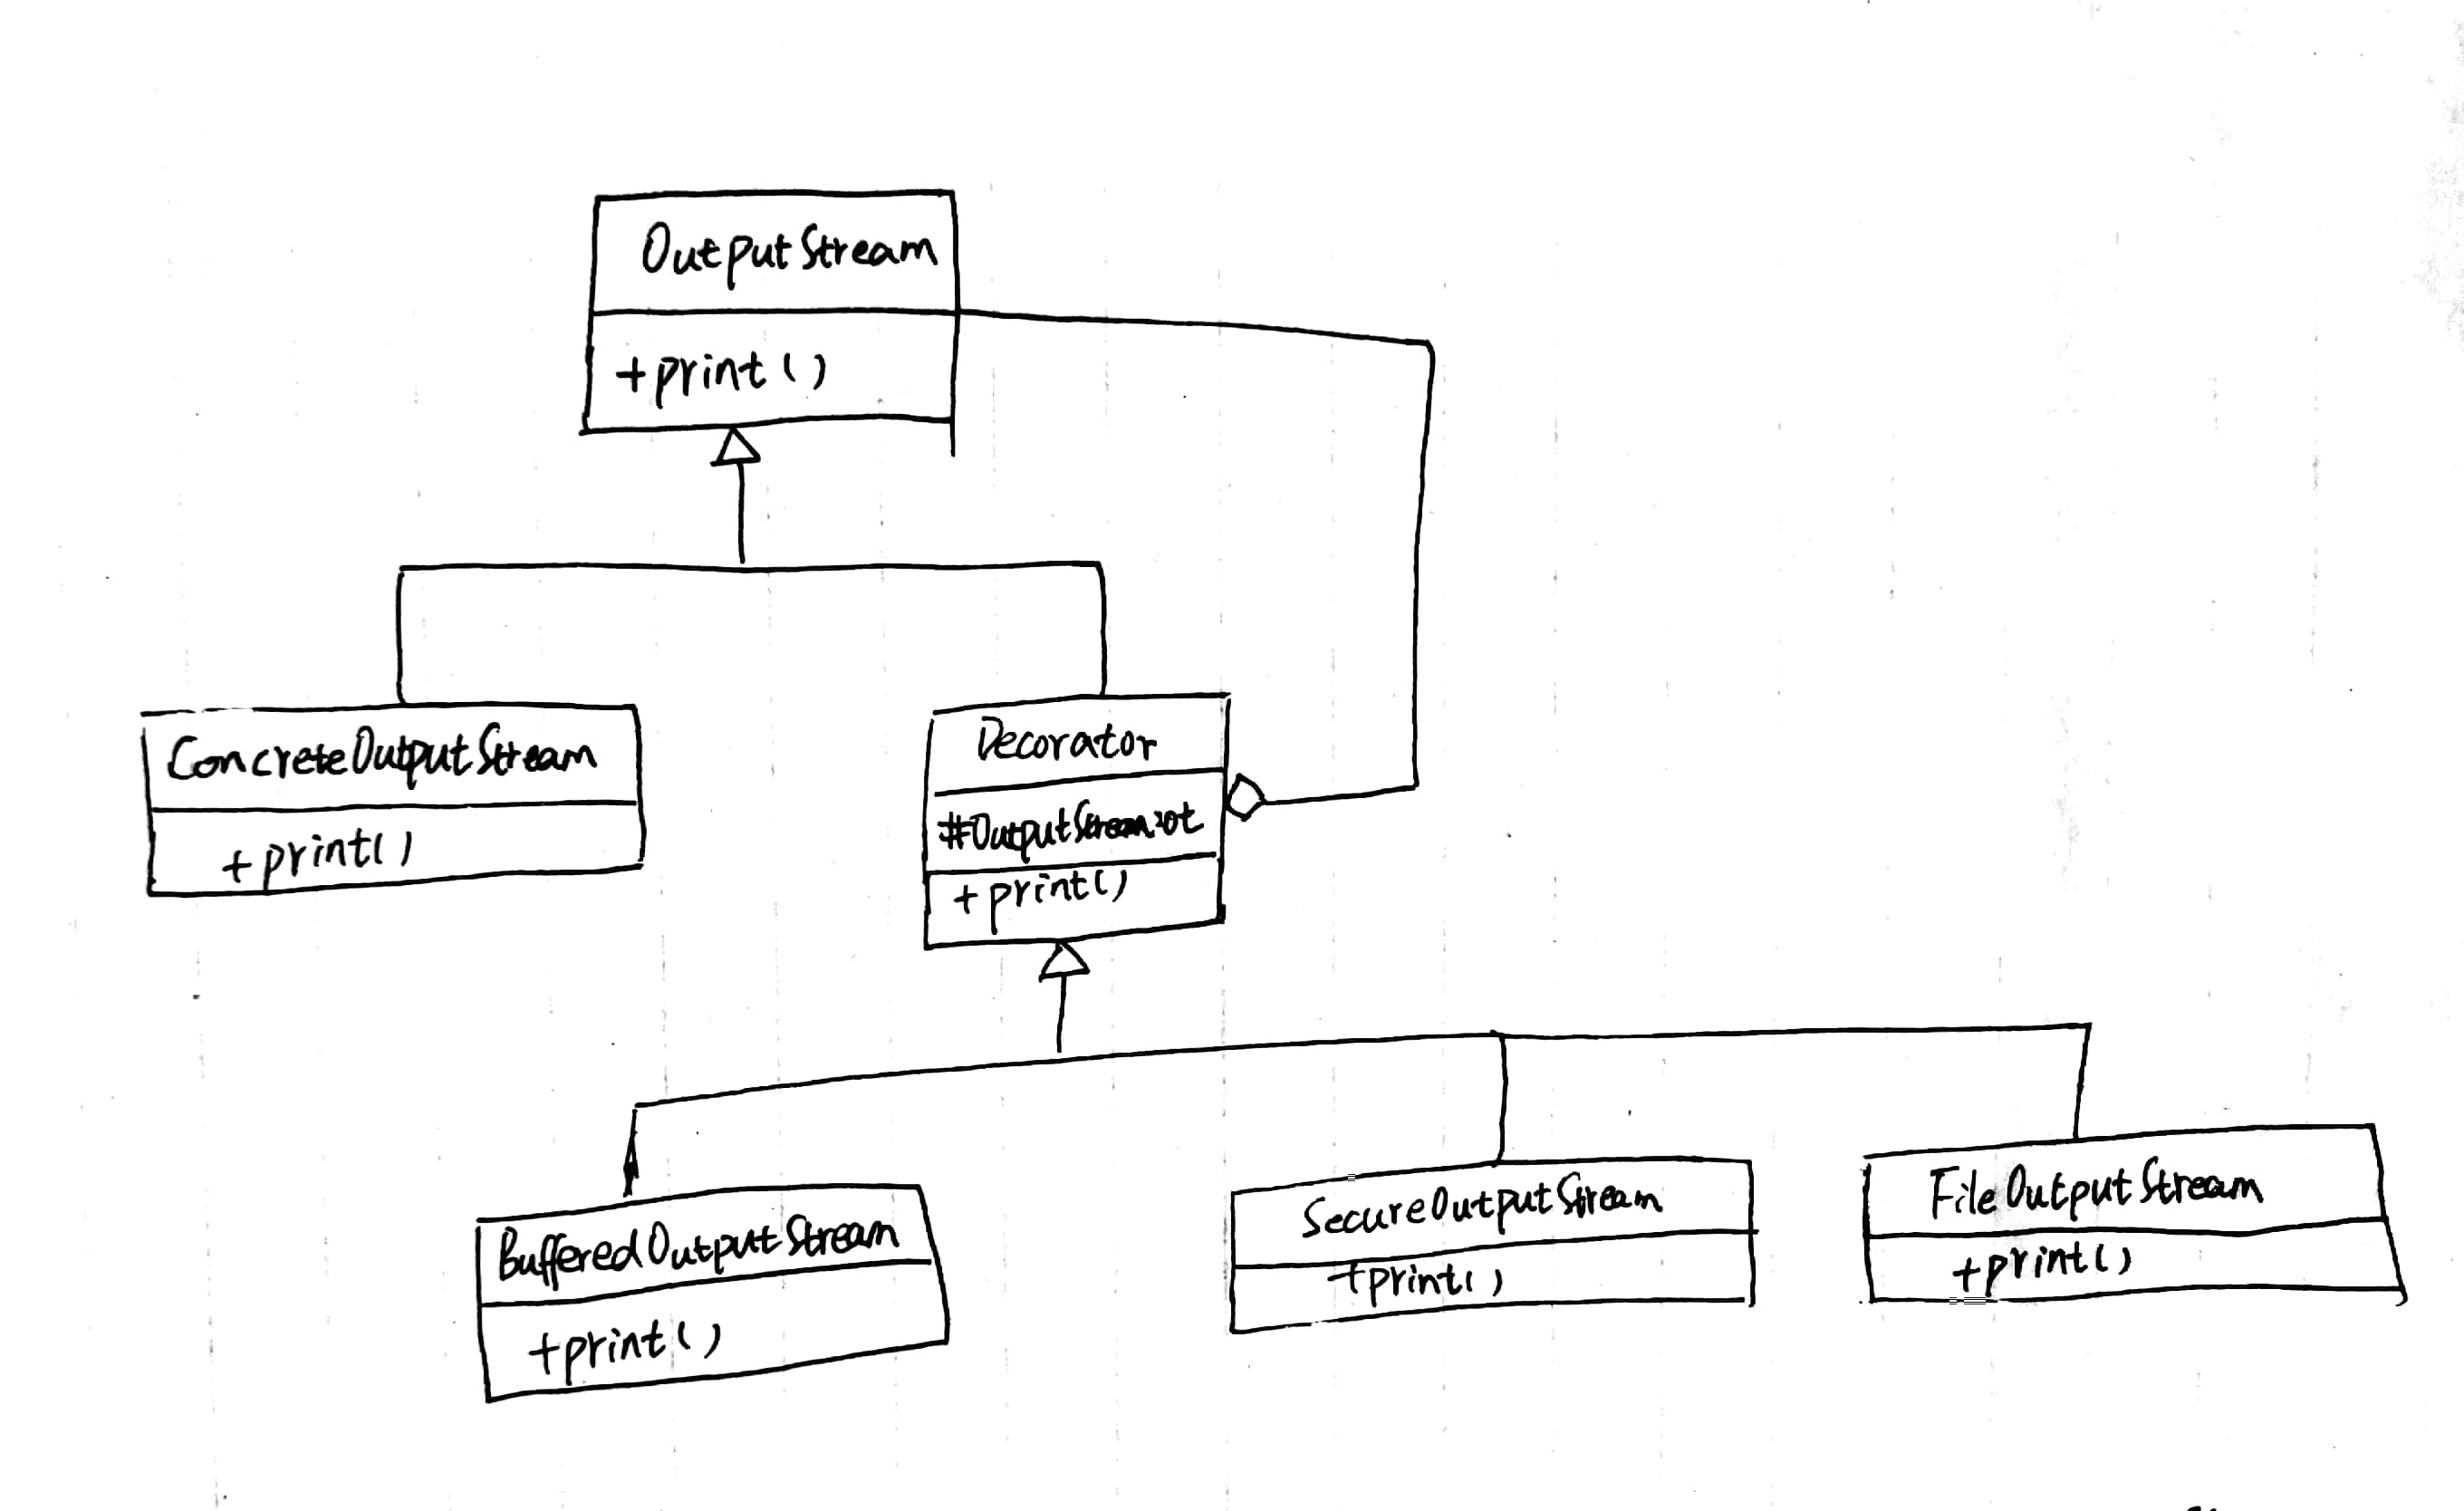 OutputStream
+print()
ConcreteOutputStream
+print()
Decorator
#OutputStream:ot
+print()
BufferedOutputStream
+print()
SecureOutputStream
+print()
FileOutputStream
+print()